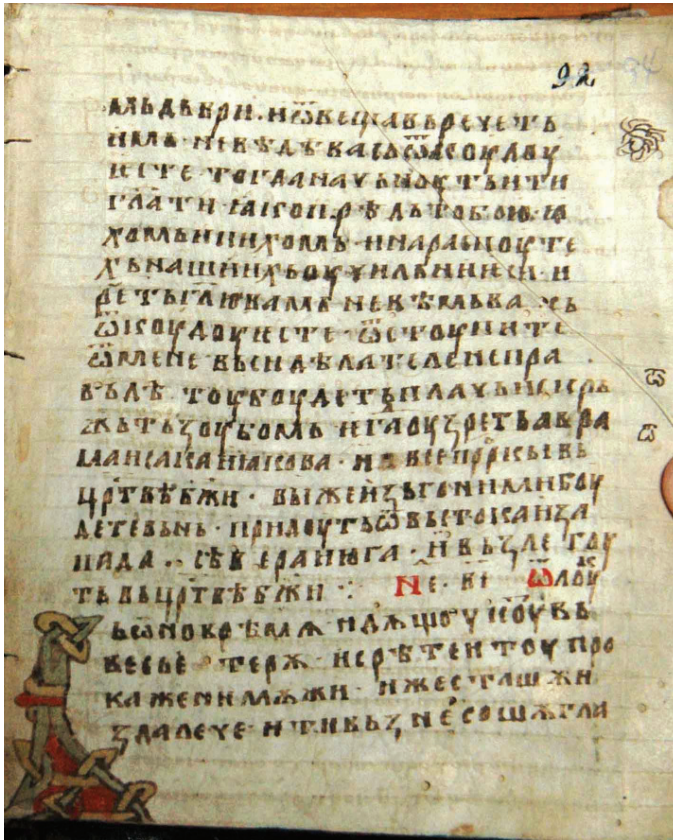 92 94
мьдвьри · и ѿвещавь речеть
имь · не вѣдѣ вась ѿкоудоу
ѥсте тогда начьноуть ити
глати · ꙗко прѣдь тобою ꙗ
хомь и пихомь · и на распоуте
хь нашихь оучиль ни ѥси · и
рететь глю вамь не вѣмь ва сь
ѿкоудоу ѥсте · ѿстоупите
ѿ мене вьси дѣлателе непра
вьдѣ · тоу боудеть плачь и скрь
жьть зоубомь · ѥгда оузреть авра
ма исака иꙗкова · и все пррокы вь
цртвѣ бжи · вы же изьгоними боу
дете вьнь · придоуть ѿ вьстока и за
пада · сѣвера и юга · и вьзлегоу
ть вь цртвѣ бжи ·:· Не · ѿ лоу
ь ѡно врѣмѧ
весь ѥтерѫ · и сърѣте и тоу про
кажени мѫжи · иже сташѫ
здалече · и ти възнесошѫ гла